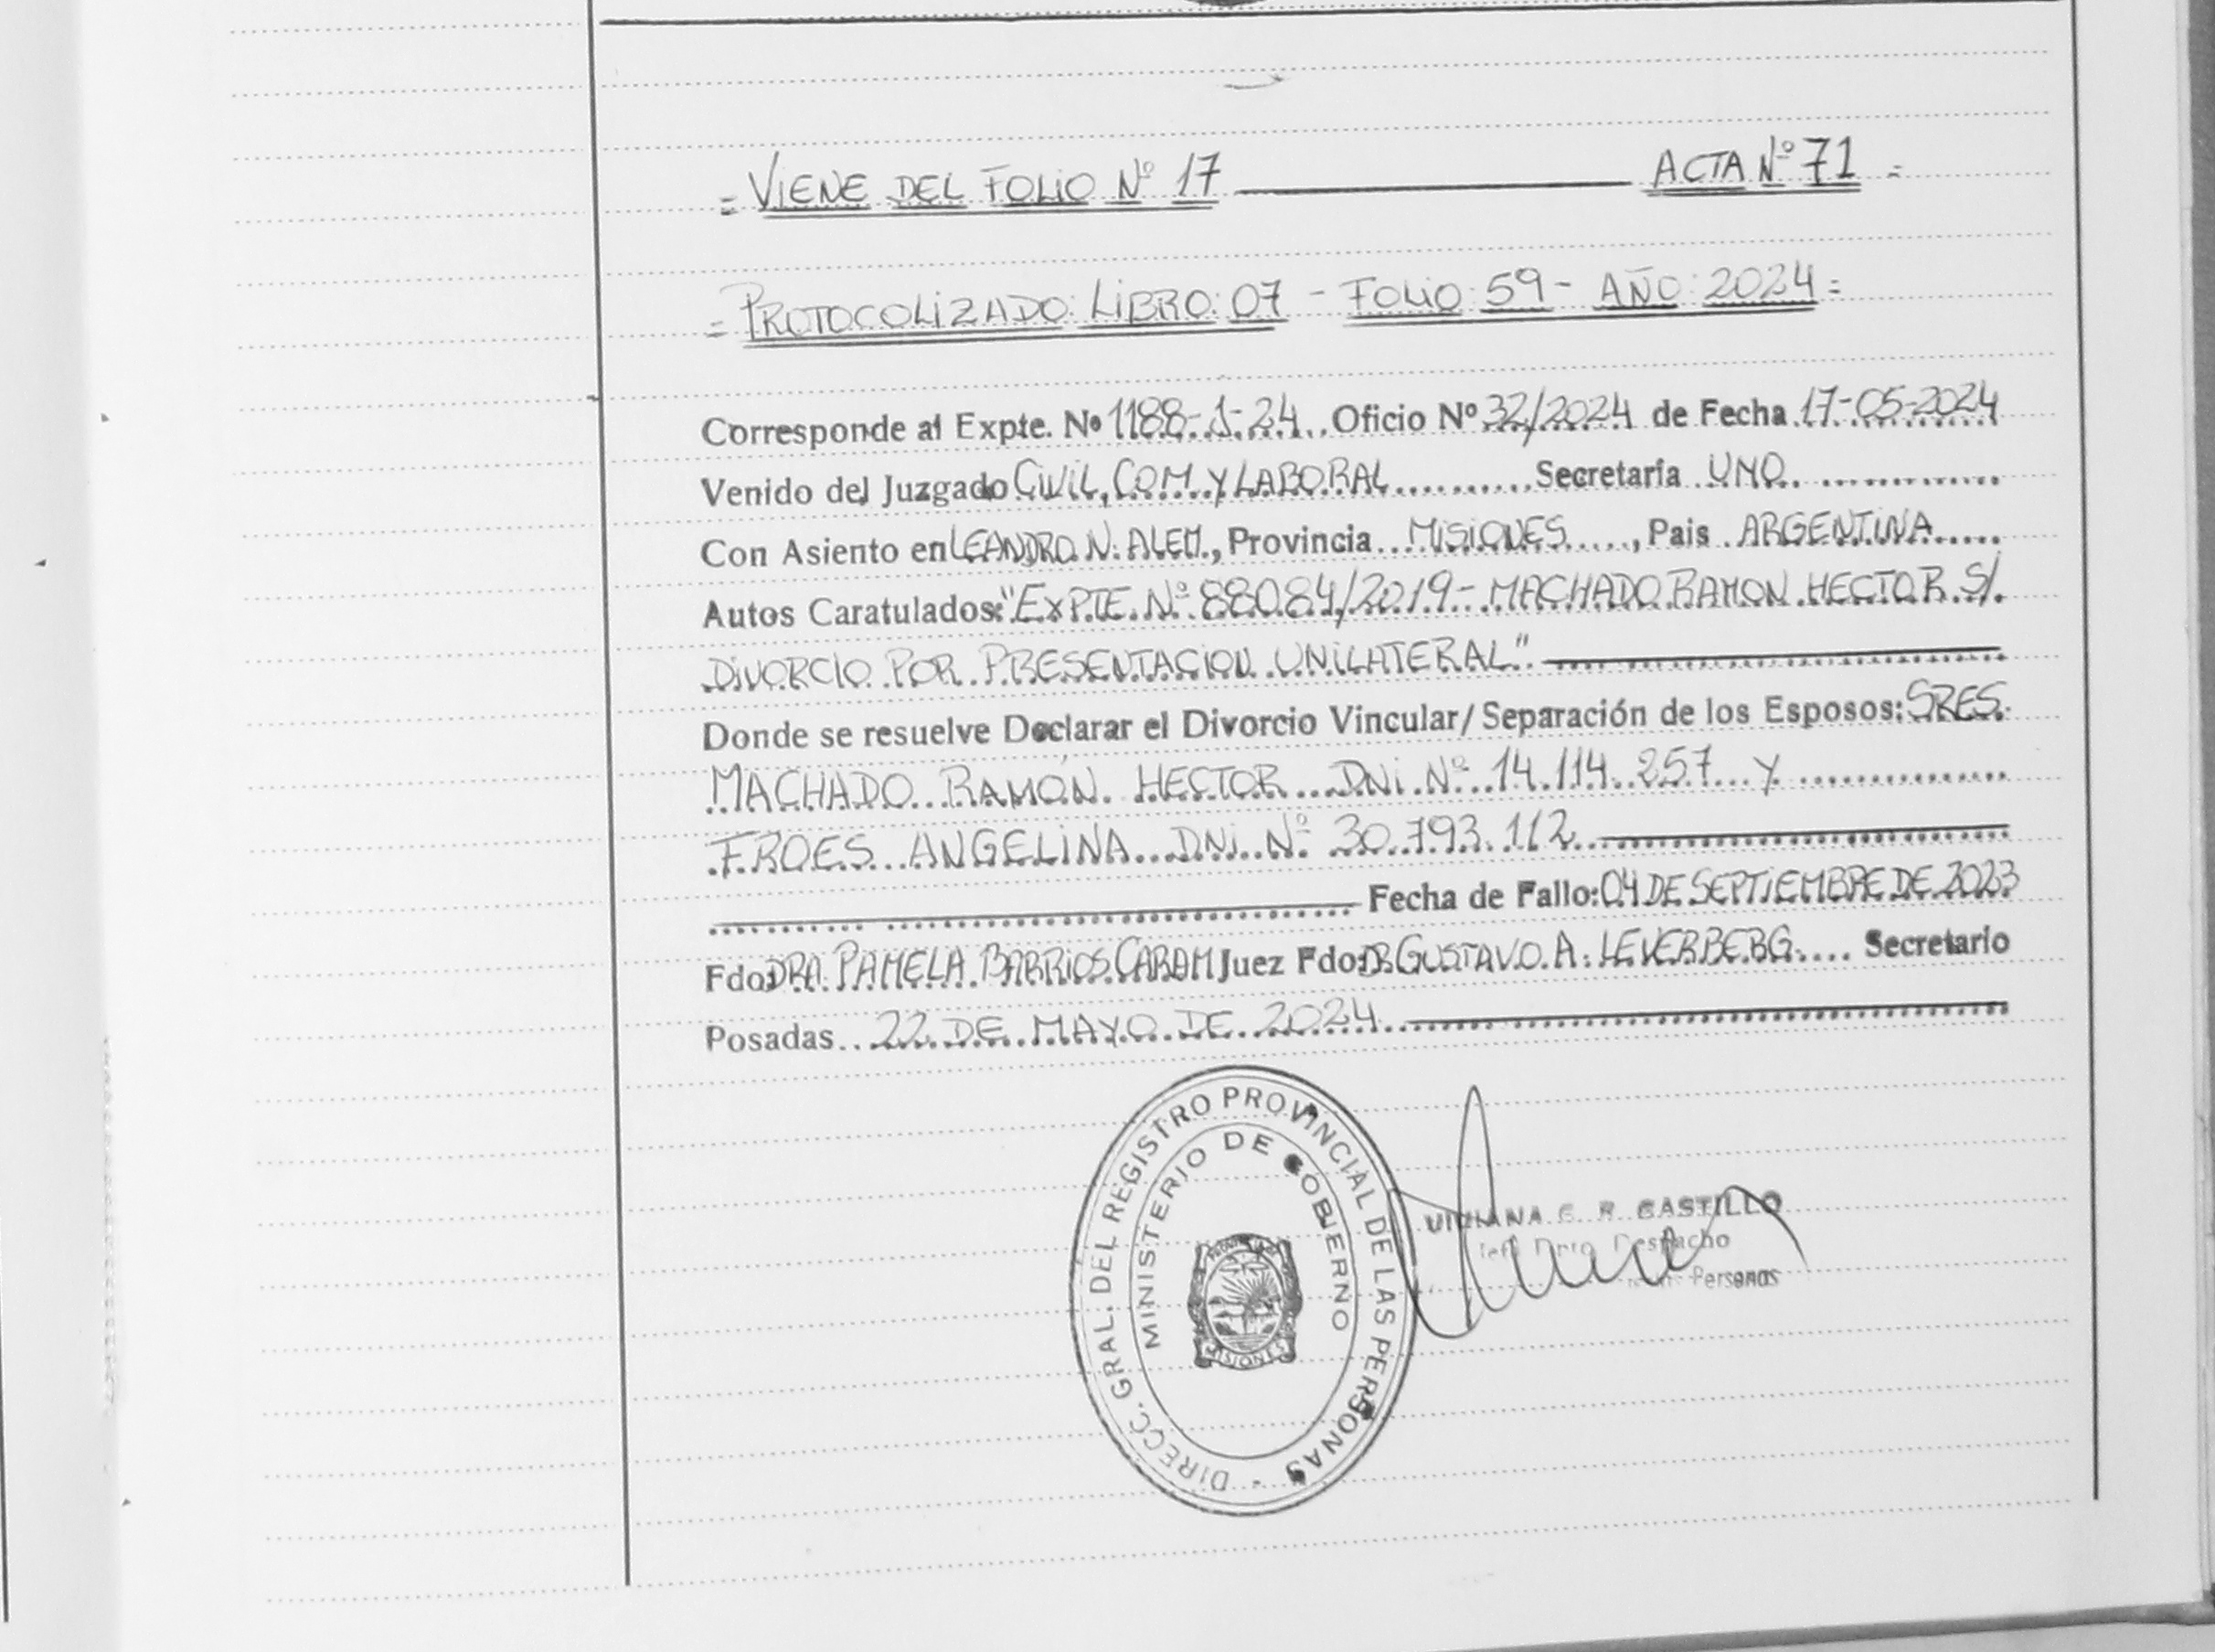 = VIENE DEL FOLIO Nº 17 ACTA Nº 71 =
= PROTOCOLIZADO: LIBRO: 07 - FOLIO: 59 - AÑO: 2024 =
Corresponde al Expte. Nº 1188-J-24. Oficio Nº 32/2024 de Fecha 17-05-2024
Venido del Juzgado CIVIL, COM. Y LABORAL Secretaría UNO.
Con Asiento en LEANDRO N. ALEM., Provincia MISIONES, Pais ARGENTINA
Autos Caratulados: "EXPTE. Nº 88084/2019 - MACHADO RAMON HECTOR S/.
DIVORCIO POR PRESENTACION UNILATERAL"
Donde se resuelve Declarar el Divorcio Vincular/Separación de los Esposos: SRES.
MACHADO RAMÓN HECTOR DNI Nº 14.114.257 Y
FROES ANGELINA DNI Nº 30.793.112
Fecha de Fallo: 04 DE SEPTIEMBRE DE 2023
Fdo: DRA. PAMELA BARRIOS CARAM Juez Fdo: DR. GUSTAVO A. LEVERBERG Secretario
Posadas 22 DE MAYO DE 2024
DIRECC. GRAL. DEL REGISTRO PROVINCIAL DE LAS PERSONAS -
MINISTERIO DE GOBIERNO
MISIONES
VIVIANA C. R. CASTILLO
Jefe Dpto. Despacho
Personas